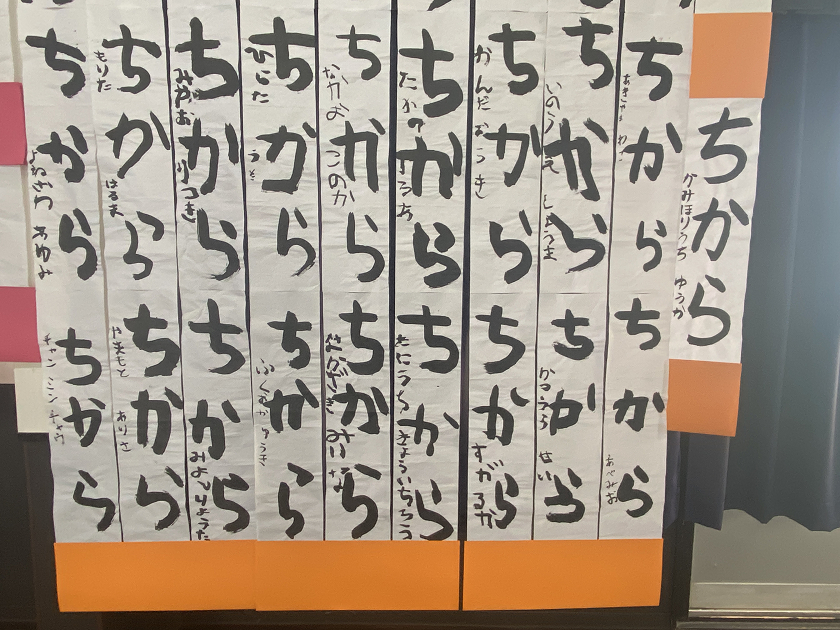 ちから
かみほりうち ゆうか
ちから
ちから
あべみお
ちから
いのうえ しょうま
ちから
かつうら せい
ちから
かんだ ゆうき
ちから
すがるか
ちから
たかの
ちから
きょういちろう
ちから
なかよ このか
ちから
みいな
ちから
ひらた
ちから
ちから
みやお りつき
ちから
みよしりょうた
ちから
もりた はるま
ちから
やまもと ありさ
ちから
あゆみ
ちから
チャン ミン チャウ